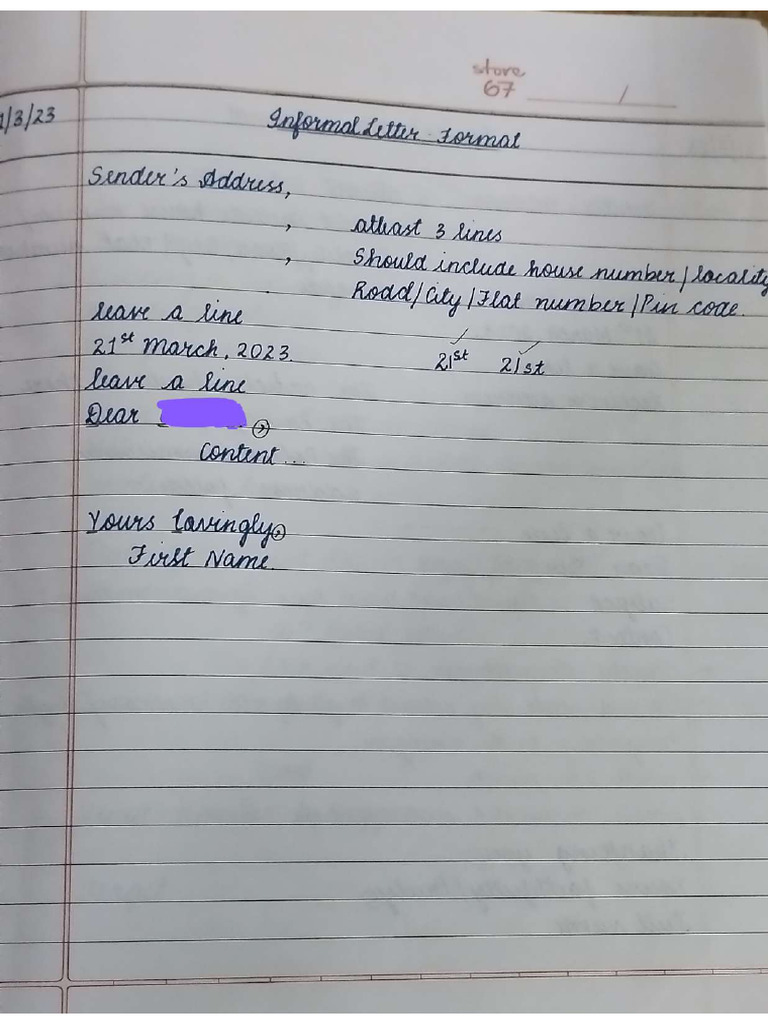 store
67 /
1/3/23
Informal Letter Format
Sender's Address,
, atleast 3 lines
, Should include house number/locality
. Road/City/Flat number/Pin code.
leave a line
21st March, 2023. 21st 21st
leave a line
Dear ,
Content...
Yours Lovingly,
First Name